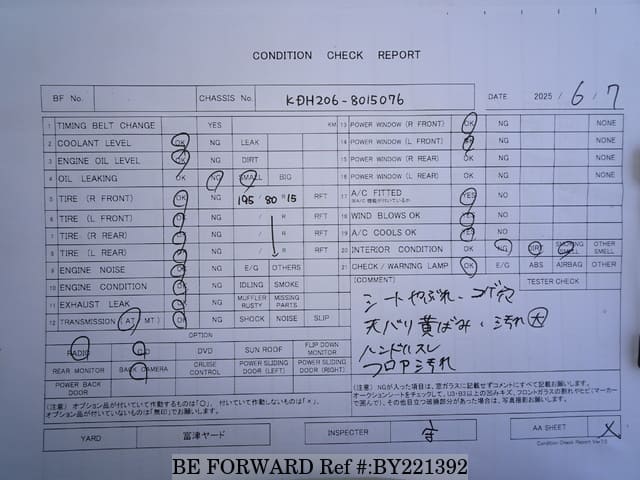 CONDITION CHECK REPORT
BF No. CHASSIS No. KDH206-8015076 DATE 2025 / 6 / 7
1 TIMING BELT CHANGE YES KM
2 COOLANT LEVEL OK NG LEAK
3 ENGINE OIL LEVEL OK NG DIRT
4 OIL LEAKING OK NG SMALL BIG
5 TIRE (R FRONT) OK NG 195 / 80 R 15 RFT
6 TIRE (L FRONT) OK NG / R RFT
7 TIRE (R REAR) OK NG / R RFT
8 TIRE (L REAR) OK NG / R RFT
9 ENGINE NOISE OK NG E/G OTHERS
10 ENGINE CONDITION OK NG IDLING SMOKE
11 EXHAUST LEAK OK NG MUFFLER RUSTY MISSING PARTS
12 TRANSMISSION (AT, MT) OK NG SHOCK NOISE SLIP
OPTION
RADIO CD DVD SUN ROOF FLIP DOWN MONITOR
REAR MONITOR BACK CAMERA CRUISE CONTROL POWER SLIDING DOOR (LEFT) POWER SLIDING DOOR (RIGHT)
POWER BACK DOOR
(注意) オプション品が付いていて作動するものは「○」、付いていて作動しないものは「×」、
オプション品が付いていないものは「無印」でお願いします。
13 POWER WINDOW (R FRONT) OK NG NONE
14 POWER WINDOW (L FRONT) NG NONE
15 POWER WINDOW (R REAR) OK NG NONE
16 POWER WINDOW (L REAR) OK NG NONE
17 A/C FITTED YES NO
※A/C 機能が付いているか
18 WIND BLOWS OK YES NO
19 A/C COOLS OK YES NO
20 INTERIOR CONDITION OK NG DIRT SMOKING SMELL OTHER SMELL
21 CHECK / WARNING LAMP OK E/G ABS AIRBAG OTHER
(COMMENT) TESTER CHECK
シートやぶれ、コゲ穴
天バリ黄ばみ、汚れ 大
ハンドルスレ
フロア汚れ
(注意) NGが入った項目は、窓ガラスに記載せずコメントにすべて記載お願いします。
オークションシートをチェックして、U3・B3以上の凹みキズ、フロントガラスの割れやヒビ(マーカーで囲んで)、その他目立つ破損部分があった場合は、写真撮影お願いします。
YARD 富津ヤード INSPECTER AA SHEET
Condition Check Report Ver7.0
BE FORWARD Ref #:BY221392